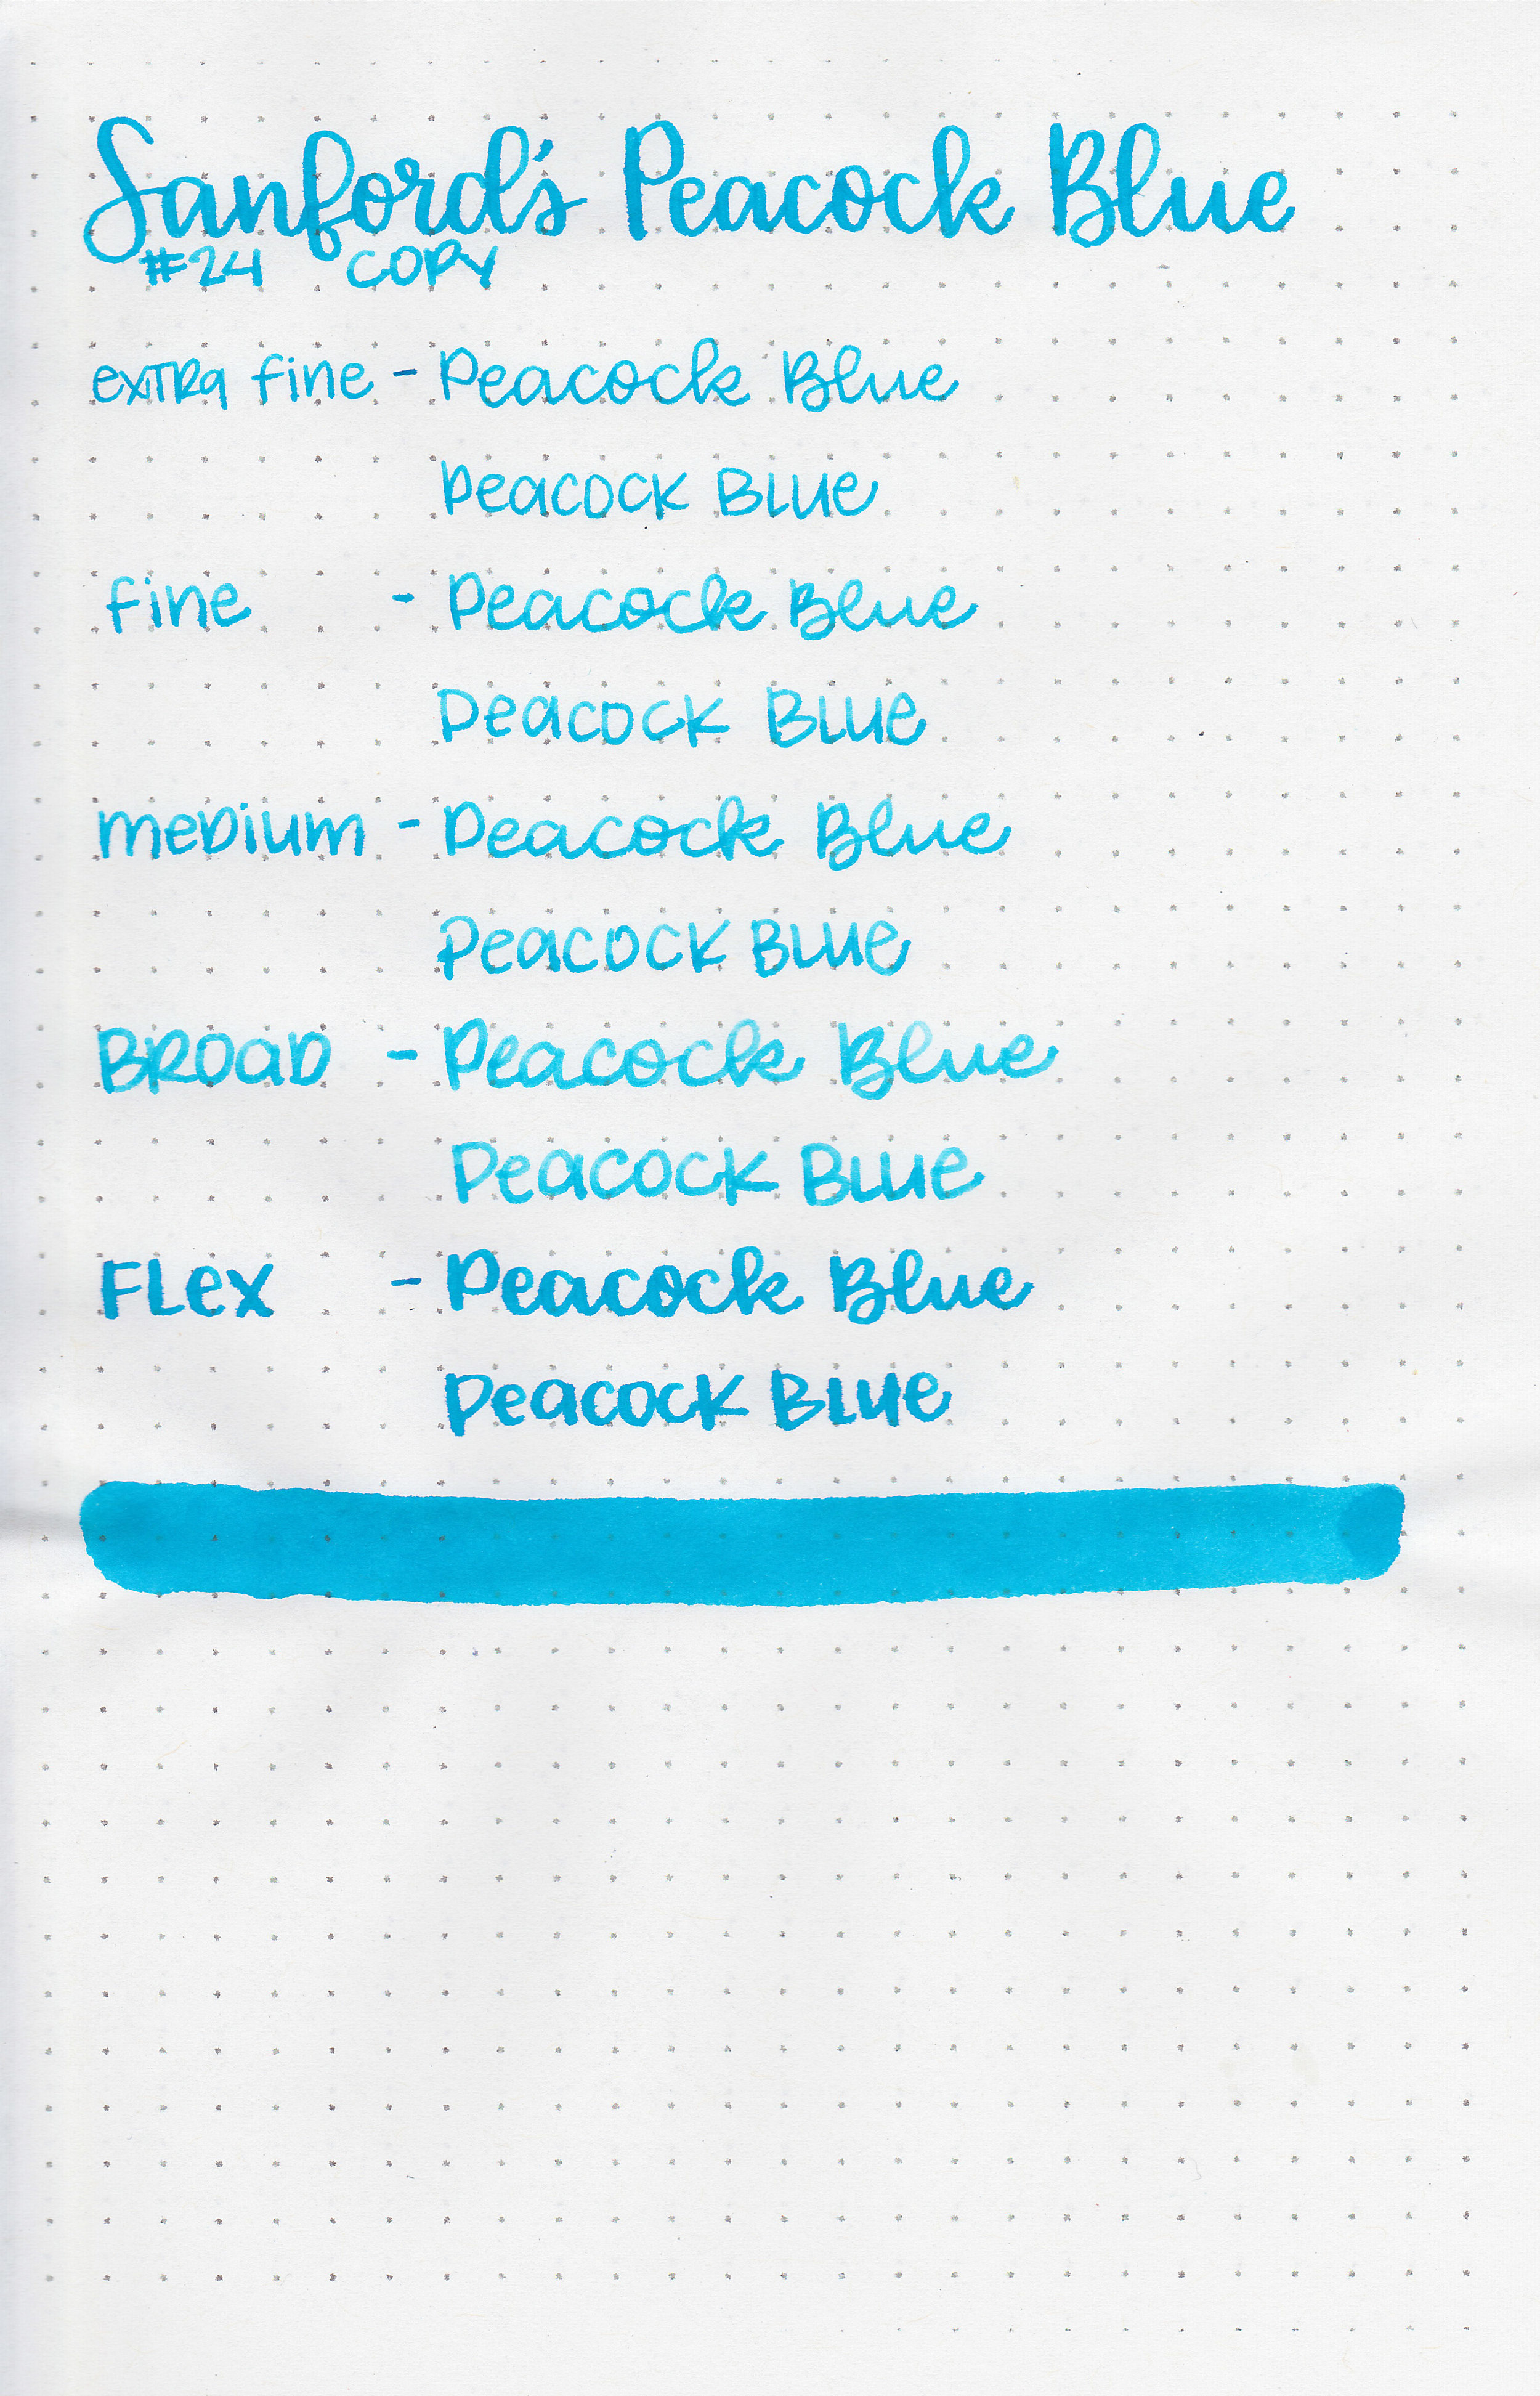 Sanford's Peacock Blue
#24 COPY
extra fine - Peacock Blue
Peacock Blue
fine - Peacock Blue
Peacock Blue
medium - Peacock Blue
Peacock Blue
Broad - Peacock Blue
Peacock Blue
Flex - Peacock Blue
Peacock Blue